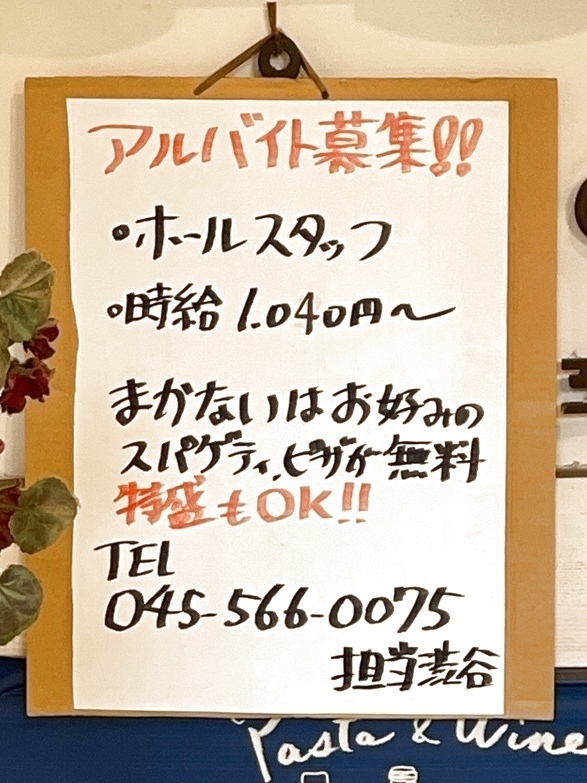 アルバイト募集!!
・ホールスタッフ
・時給 1.040円〜
まかないはお好みの
スパゲティ、ピザが無料
特盛もOK!!
TEL
045-566-0075
担当渋谷
Pasta & Wine